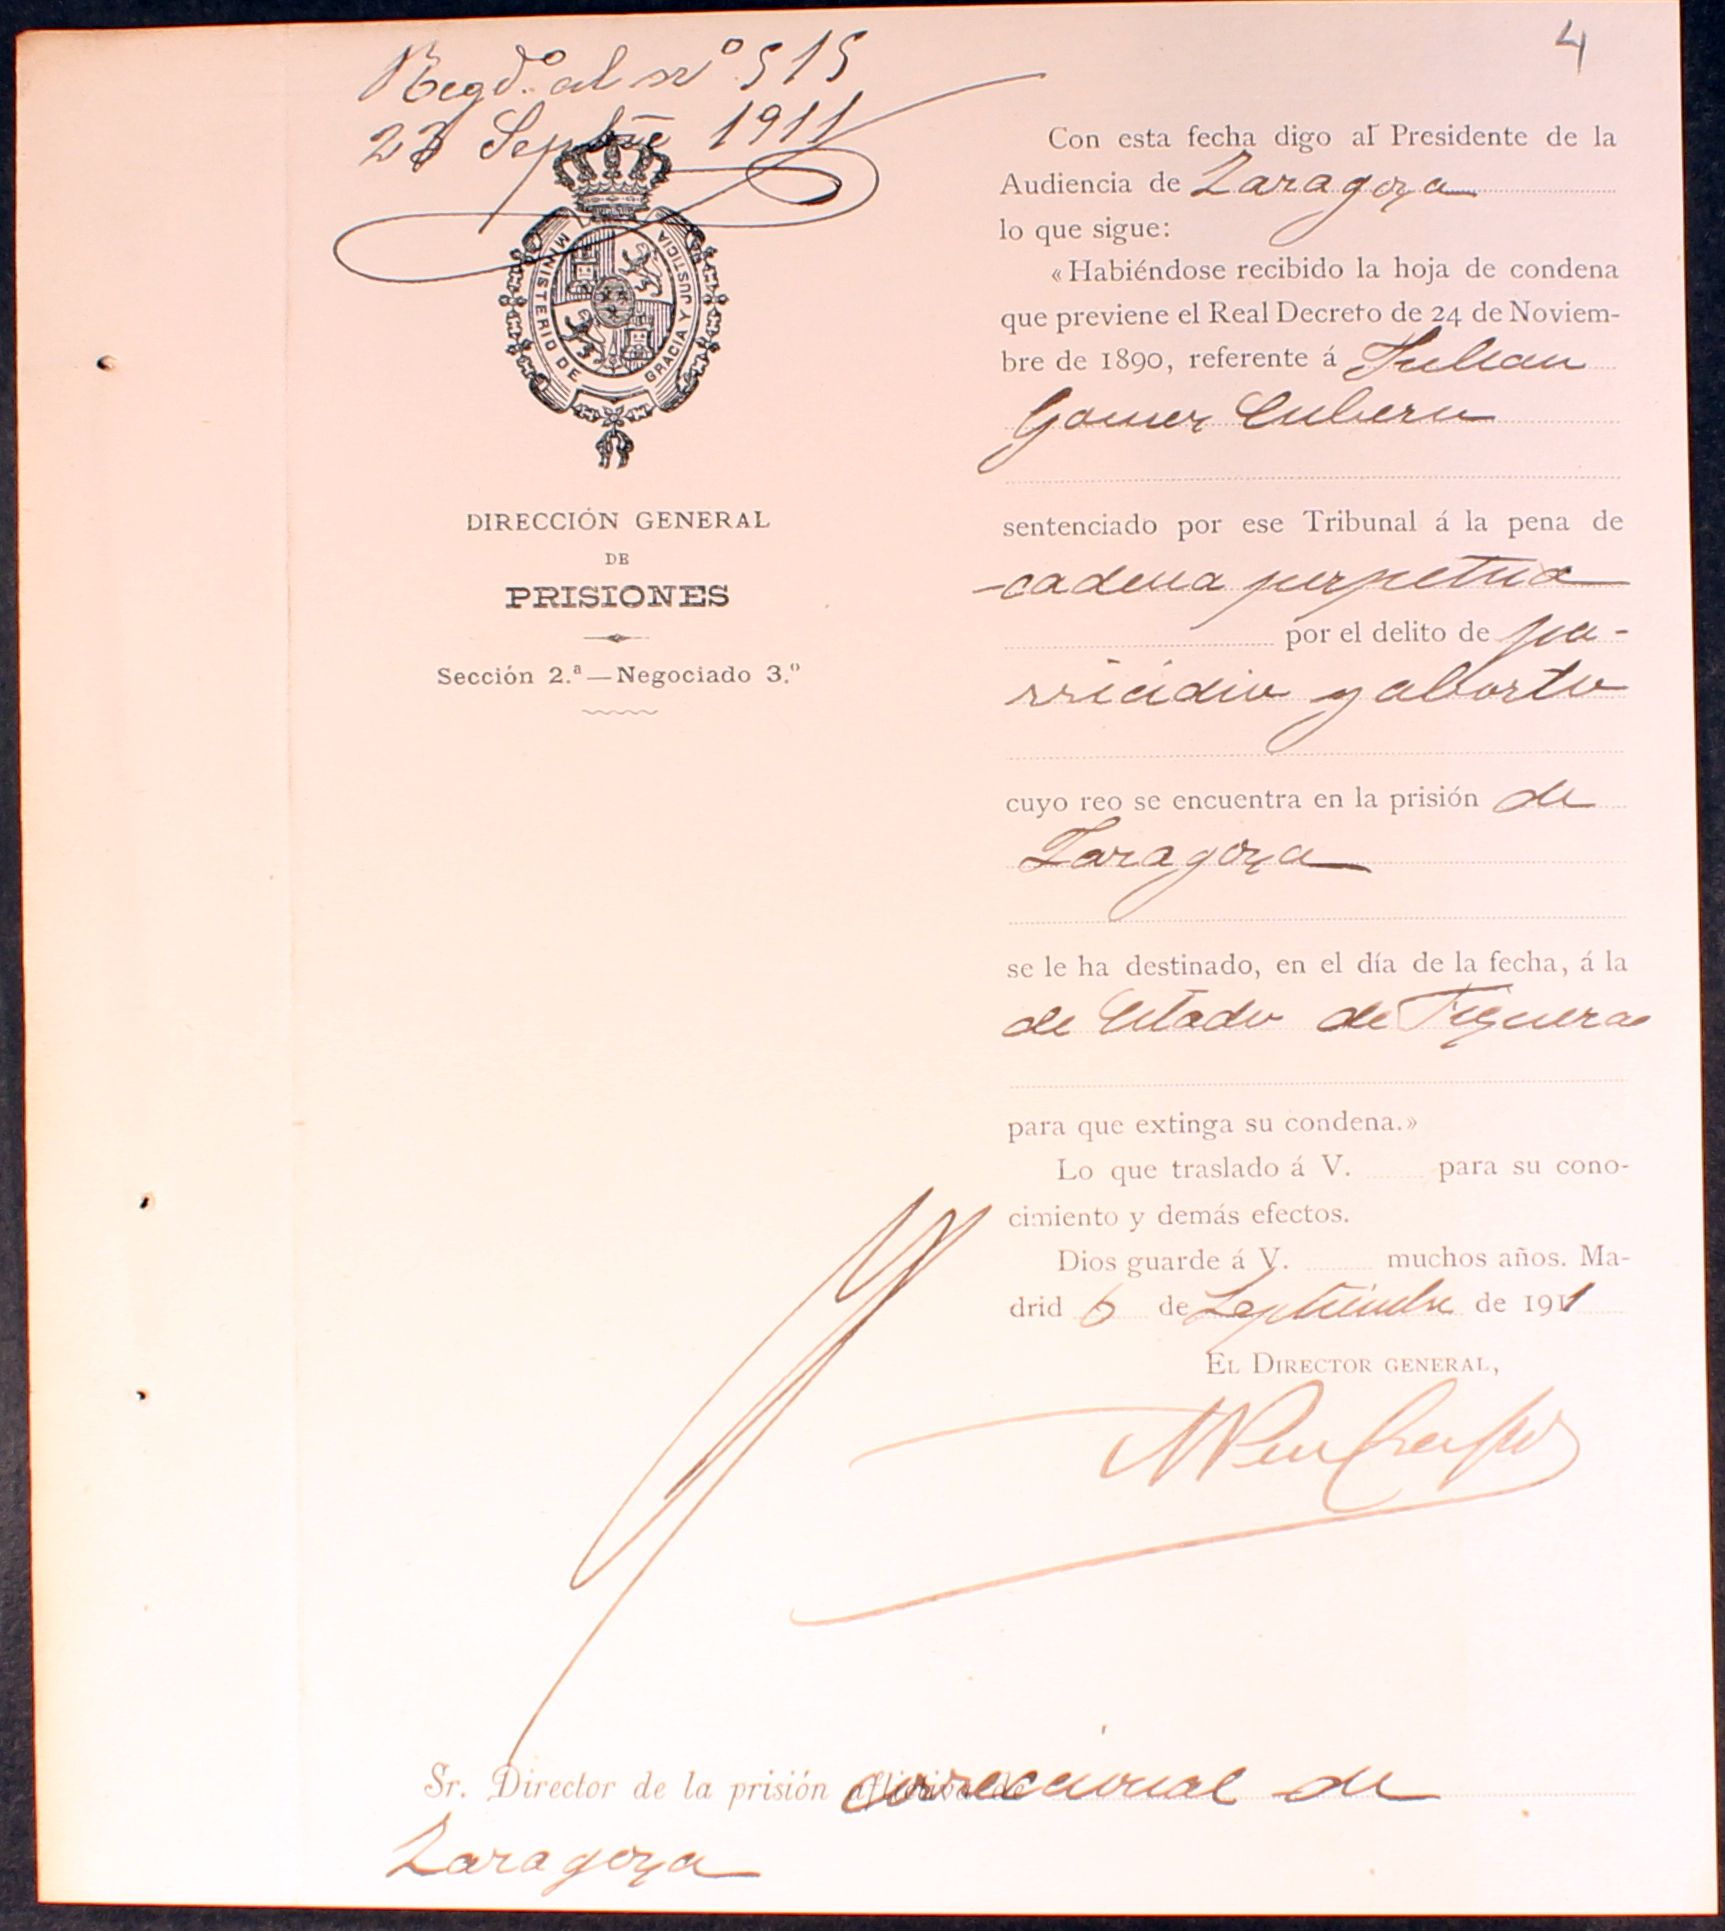 4
Regdº al nº 515
23 Septbre 1911
MINISTERIO DE GRACIA Y JUSTICIA
DIRECCIÓN GENERAL
DE
PRISIONES
Sección 2.ª—Negociado 3.º
Con esta fecha digo al Presidente de la
Audiencia de Zaragoza
lo que sigue:
«Habiéndose recibido la hoja de condena
que previene el Real Decreto de 24 de Noviem-
bre de 1890, referente á Julian
Gomez Cubero
sentenciado por ese Tribunal á la pena de
cadena perpetua
por el delito de pa-
rricidio y aborto
cuyo reo se encuentra en la prisión de
Zaragoza
se le ha destinado, en el día de la fecha, á la
de Estado de Figueras
para que extinga su condena.»
Lo que traslado á V. para su cono-
cimiento y demás efectos.
Dios guarde á V. muchos años. Ma-
drid 6 de Septiembre de 1911
EL DIRECTOR GENERAL,
Sr. Director de la prisión correccional de
Zaragoza